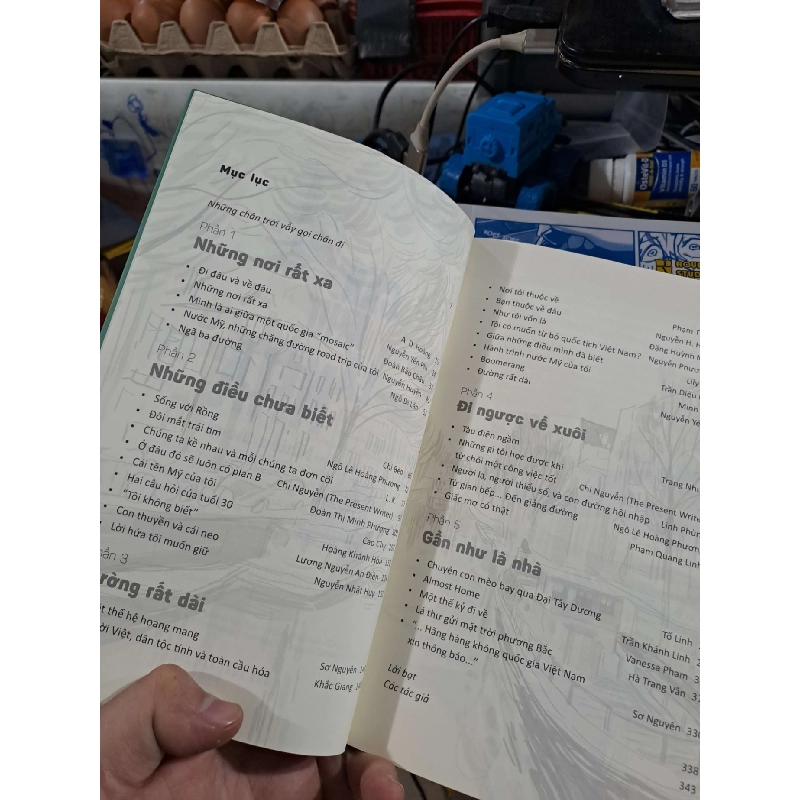 Mục lục
Những chân trời vẫy gọi chân đi
Phần 1
Những nơi rất xa
• Đi đâu và về đâu
• Những nơi rất xa
• Mình là ai giữa một quốc gia "mosaic"
• Nước Mỹ, những chặng đường road trip của tôi
• Ngã ba đường
Nguyễn Yến
Đoàn Bảo Châu
Nguyễn Huyền
Phần 2
Những điều chưa biết
• Sống với Rồng
• Đôi mắt trái tim
• Chúng ta kề nhau và mỗi chúng ta đơn côi
• Ở đâu đó sẽ luôn có plan B
• Cái tên Mỹ của tôi
• Hai câu hỏi của tuổi 30
• "Tôi không biết"
• Con thuyền và cái neo
• Lời hứa tôi muốn giữ
Ngô Lê Hoàng Phương
Chi Nguyễn (The Present Writer)
Đoàn Thị Minh Phượng
Hoàng Khánh Hòa
Lương Nguyễn An Điền
Nguyễn Nhất Huy
hần 3
ường rất dài
t thế hệ hoang mang
ời Việt, dân tộc tính và toàn cầu hóa
Sơ Nguyên
Khắc Giang
• Nơi tôi thuộc về
• Bạn thuộc về đâu
• Như tôi vốn là
• Tôi có muốn từ bỏ quốc tịch Việt Nam?
• Giữa những điều mình đã biết
• Hành trình nước Mỹ của tôi
• Boomerang
• Đường rất dài
Phạm T
Nguyễn H.
Đặng Huỳnh
Nguyễn Phươ
Lily
Trần Diệu
Minh
Nguyễn Yế
Phần 4
Đi ngược về xuôi
• Tàu điện ngầm
• Những gì tôi học được khi
từ chối một công việc tốt
• Người la, người thiểu số, và con đường hội nhập
• Từ gian bếp... Đến giảng đường
• Giấc mơ có thật
Trang Nhi
Chi Nguyễn (The Present Write
Linh Phùn
Ngô Lê Hoàng Phươn
Phạm Quang Linh
Phần 5
Gần như là nhà
• Chuyện con mèo bay qua Đại Tây Dương
• Almost Home
• Một thế kỷ đi về
• Lá thư gửi mặt trời phương Bắc
• "... Hãng hàng không quốc gia Việt Nam
xin thông báo..."
Tố Linh
Trần Khánh Linh
Vanessa Phạm
Hà Trang Vân
Sơ Nguyên 330
Lời bạt 338
Các tác giả 343
OsteVit-D
VITAMIN D3